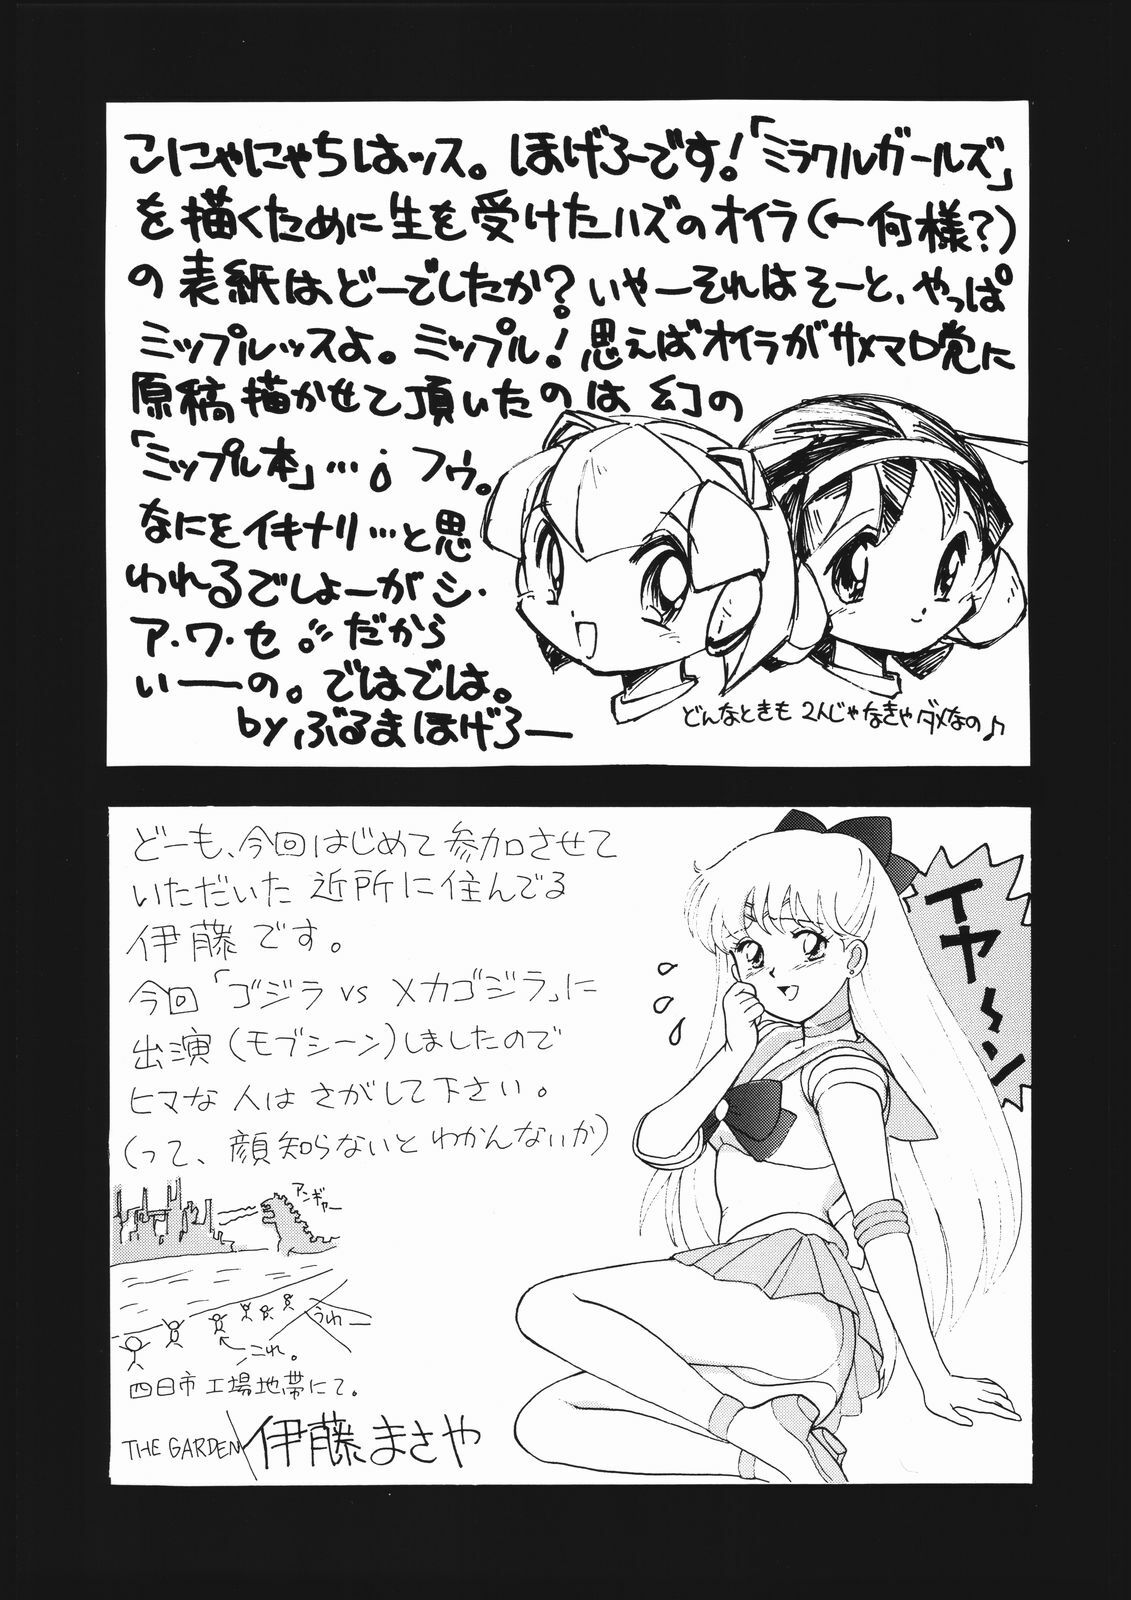 こにゃにゃちはッス。ほげろーです!「ミラクルガールズ」
を描くために生を受けたハズのオイラ(←何様?)
の表紙はどーでしたか?いやーそれはそーと、やっぱ
ミップルッスよ。ミップル!思えばオイラがサメマロ党に
原稿描かせて頂いたのは幻の
「ミップル本」…。フゥ。
なにをイキナリ…と思
われるでしょーがシ・
ア・ワ・セ。だから
いーの。ではでは。
by ぶるまほげろー
どんなときも2人じゃなきゃダメなの♪
どーも、今回はじめて参加させて
いただいた近所に住んでる
伊藤です。
今回「ゴジラvsメカゴジラ」に
出演(モブシーン)しましたので
ヒマな人はさがして下さい。
(って、顔知らないとわかんないか)
イヤ〜ン
アンギャー
うわー
これ。
四日市工場地帯にて。
THE GARDEN/伊藤まさや